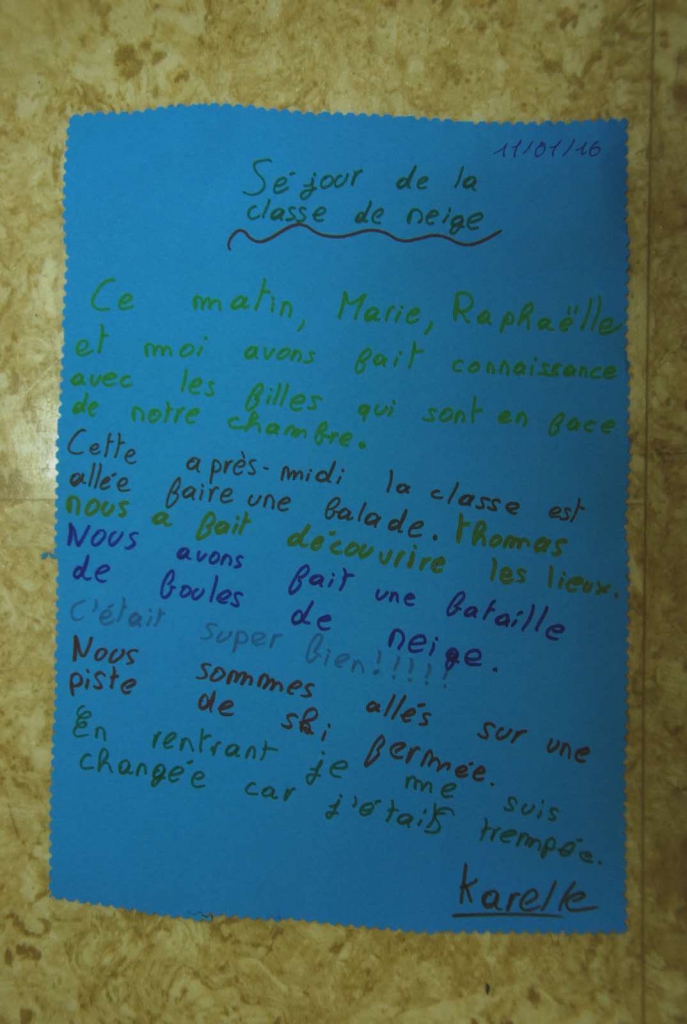 11/01/16
Séjour de la
classe de neige
Ce matin, Marie, Raphaëlle
et moi avons fait connaissance
avec les filles qui sont en face
de notre chambre.
Cette après-midi la classe est
allée faire une balade. Thomas
nous a fait découvrire les lieux.
Nous avons fait une bataille
de boules de neige.
C'était super bien!!!!!
Nous sommes allés sur une
piste de ski fermée.
En rentrant je me suis
changée car j'étais trempée.
Karelle